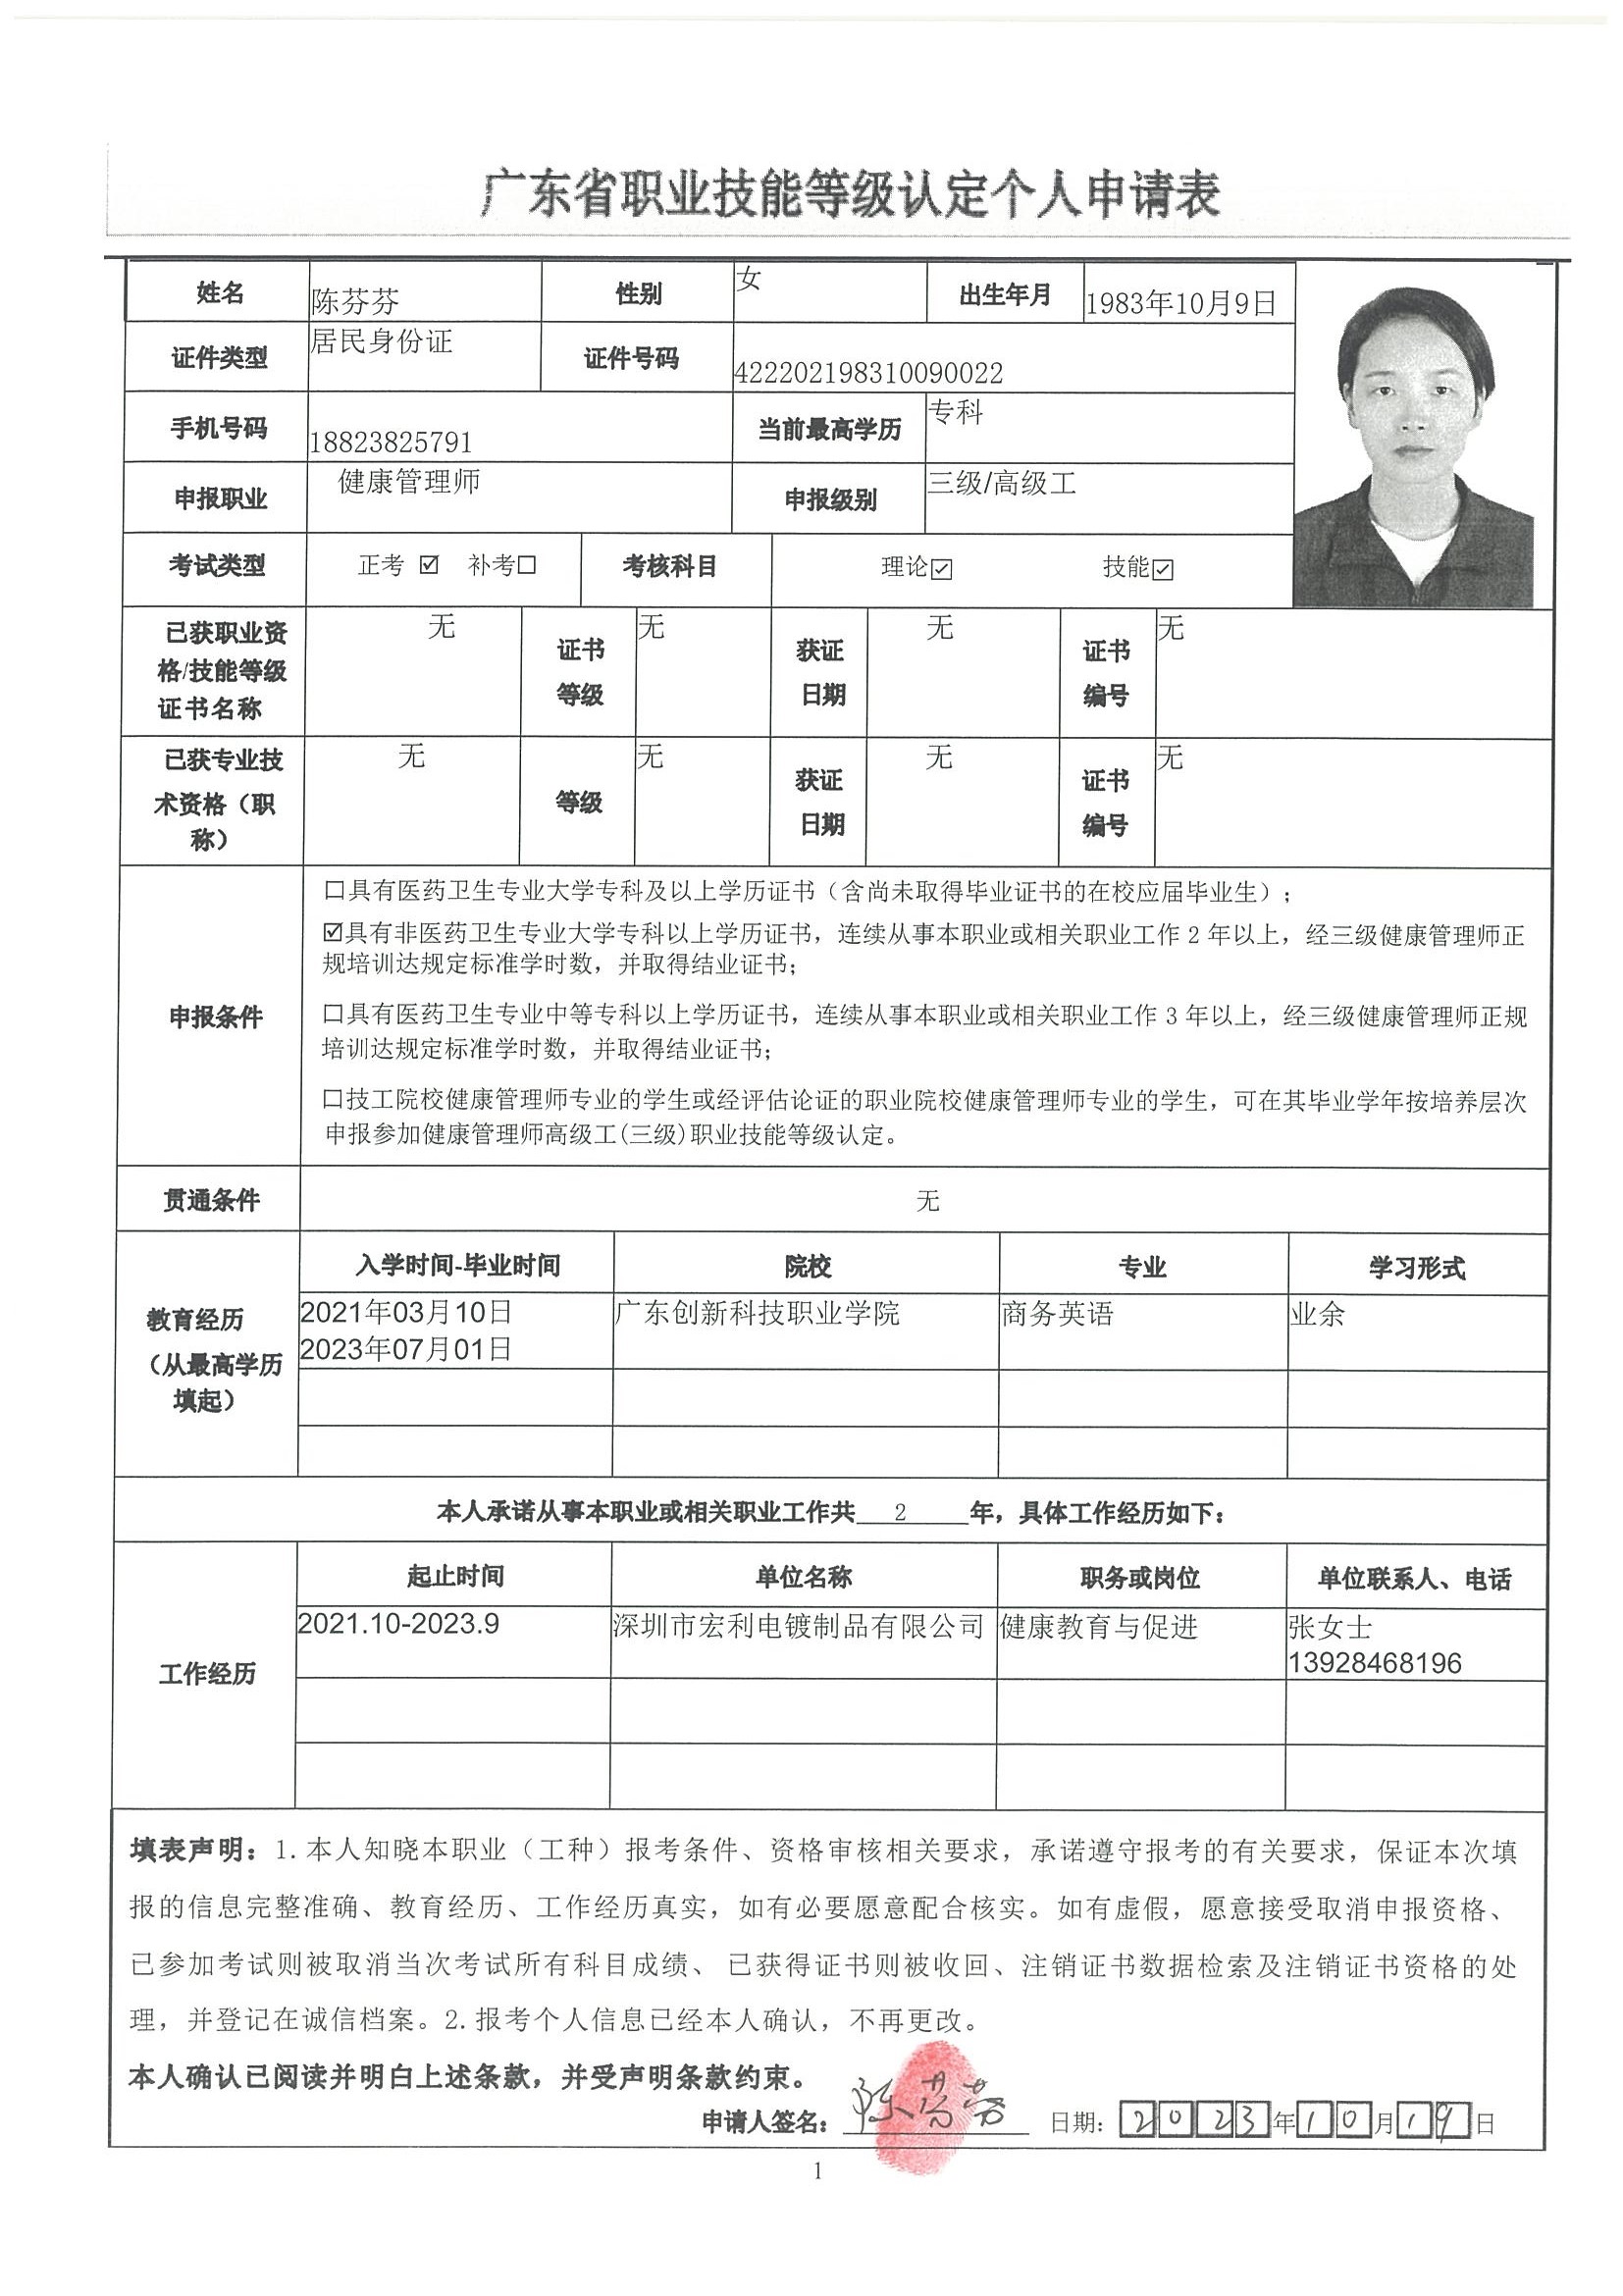 广东省职业技能等级认定个人申请表
姓名 陈芬芬 性别 女 出生年月 1983年10月9日
证件类型 居民身份证 证件号码 422202198310090022
手机号码 18823825791 当前最高学历 专科
申报职业 健康管理师 申报级别 三级/高级工
考试类型 正考 ☑ 补考☐ 考核科目 理论☑ 技能☑
已获职业资
格/技能等级
证书名称
无
证书
等级
无
获证
日期
无
证书
编号
无
已获专业技
术资格（职
称）
无
等级
无
获证
日期
无
证书
编号
无
申报条件
☐具有医药卫生专业大学专科及以上学历证书（含尚未取得毕业证书的在校应届毕业生）；
☑具有非医药卫生专业大学专科以上学历证书，连续从事本职业或相关职业工作 2 年以上，经三级健康管理师正
规培训达规定标准学时数，并取得结业证书；
☐具有医药卫生专业中等专科以上学历证书，连续从事本职业或相关职业工作 3 年以上，经三级健康管理师正规
培训达规定标准学时数，并取得结业证书；
☐技工院校健康管理师专业的学生或经评估论证的职业院校健康管理师专业的学生，可在其毕业学年按培养层次
申报参加健康管理师高级工(三级)职业技能等级认定。
贯通条件 无
教育经历
（从最高学历
填起）
入学时间-毕业时间 院校 专业 学习形式
2021年03月10日 广东创新科技职业学院 商务英语 业余
2023年07月01日
本人承诺从事本职业或相关职业工作共 2 年，具体工作经历如下：
工作经历
起止时间 单位名称 职务或岗位 单位联系人、电话
2021.10-2023.9 深圳市宏利电镀制品有限公司 健康教育与促进 张女士
13928468196
填表声明：1.本人知晓本职业（工种）报考条件、资格审核相关要求，承诺遵守报考的有关要求，保证本次填
报的信息完整准确、教育经历、工作经历真实，如有必要愿意配合核实。如有虚假，愿意接受取消申报资格、
已参加考试则被取消当次考试所有科目成绩、 已获得证书则被收回、注销证书数据检索及注销证书资格的处
理，并登记在诚信档案。2.报考个人信息已经本人确认，不再更改。
本人确认已阅读并明白上述条款，并受声明条款约束。
申请人签名：陈芬芬 日期：2023年10月19日
1